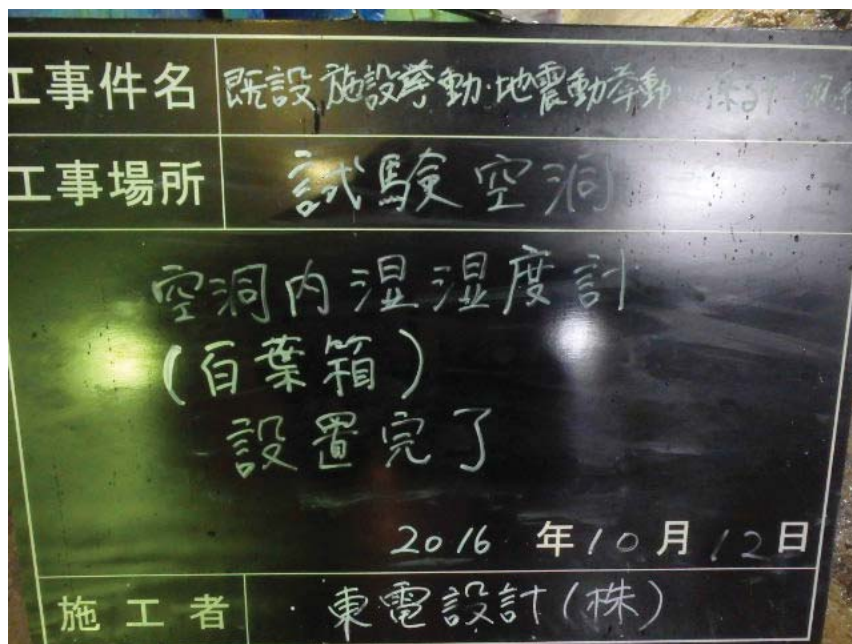 工事件名 既設施設挙動・地震動挙動
工事場所 試験空洞
空洞内湿湿度計
(百葉箱)
設置完了
2016 年10月12日
施工者 東電設計(株)